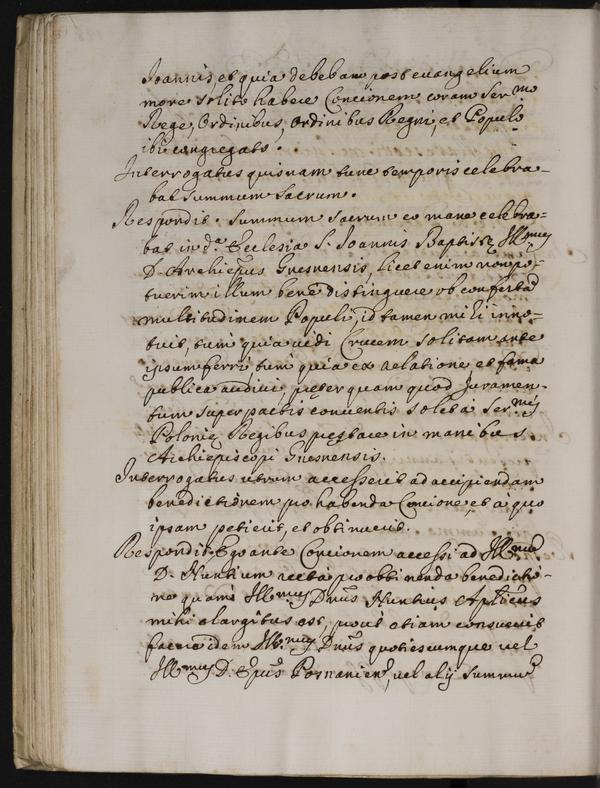 Joannis, et quia debebam post euangelium
more solito habere Concionem coram Ser.mo
Rege, Ordinibus, Ordinibus Regni, et Populo
ibi congregato.
Interrogatus quisnam tunc temporis celebra-
bat summum sacrum.
Respondit. summum sacrum eo mane celebra-
bat in d.a Ecclesia S. Joannis Baptistę Ill.mus
D. Archiepũs Gnesnensis, licet enim non po-
tuerim illum bene distinguere ob confertã
multitudinem Populi, id tamen mihi inno-
tuit, tum quia uidi Crucem solitam ante
ipsum ferri tum quia ex relatione et fama
publica audiui, pręter quam quod Juramen-
tum super pactis conuentis soleba Ser.mis
Polonię Regibus pręstare in manibus
Archiepiscopi Gnesnensis.
Interrogatus utrum accesserit ad accipiendam
benedictionem pro habenda Concione, et à quo
ipsam petierit, et obtinuerit.
Respondit. Ego ante Concionem accessi ad Ill.mum
D. Nuntium recta pro obtinenda benedictio-
ne quam Ill.mus Dnũs Nuntius Aplicus
mihi elargitus est, prout etiam consueuit
facere idem Ill.mus Dnũs quotiescumque uel
Ill.mus D. Epũs Posnanien, uel alij summũ